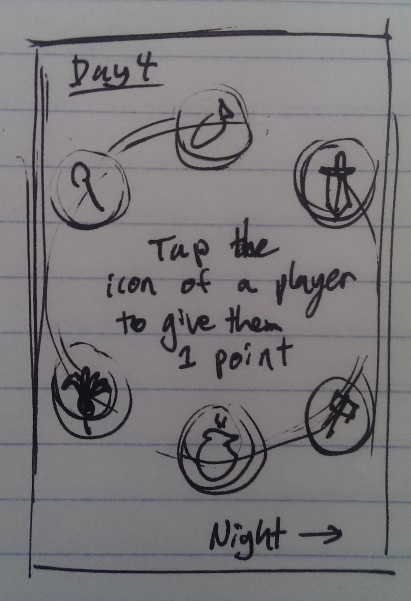 Day 4
Tap the
icon of a player
to give them
1 point
Night →